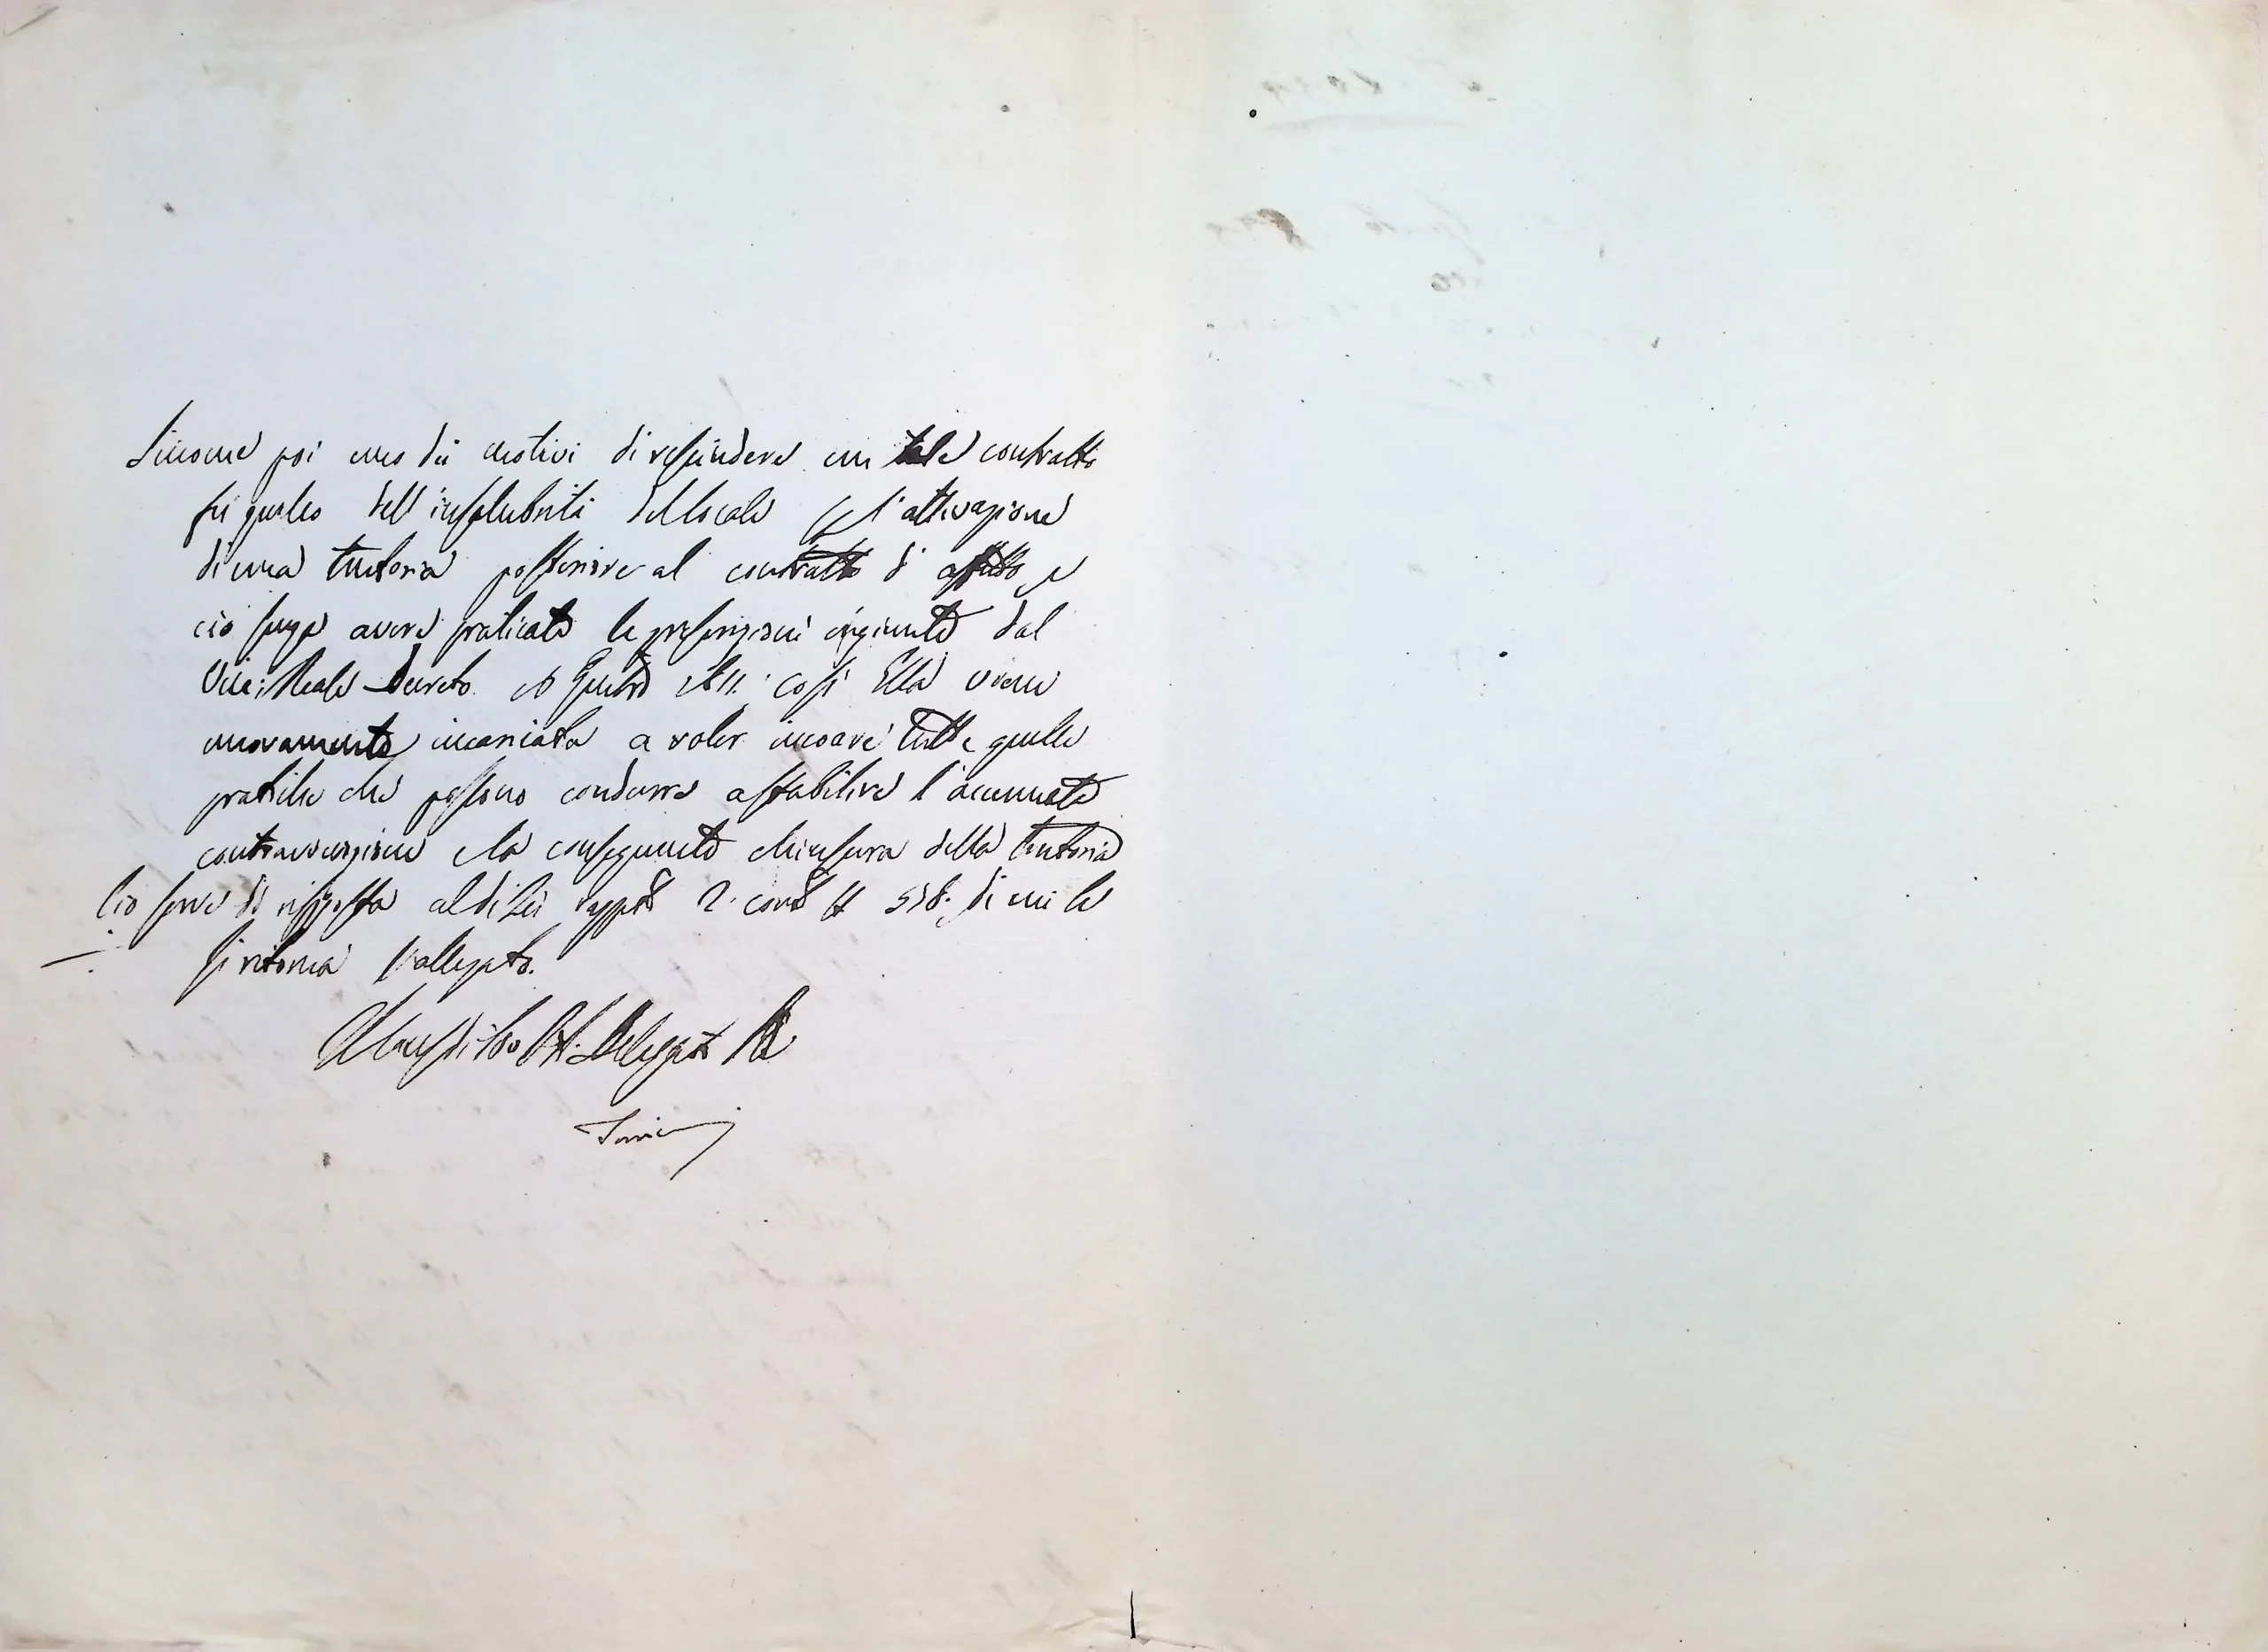 Siccome poi uno dei motivi di rescindere un tale contratto
fu quello dell'insalubrità del locale per l'attivazione
di una tintoria posteriore al contratto d'affitto, e
ciò senza avere praticate le prescrizioni ingiunte dal
Vice: Reale Decreto Giugno così Ella viene
nuovamente incaricata a voler incoare tutte quelle
pratiche che possono condurre a stabilire l'accennata
contravvenzione e la conseguente chiusura della tintoria
Ciò serve di risposta al di Lei rapp.to 2. corr.e N 538. di cui le
si ritorna l'allegato.
Delegato